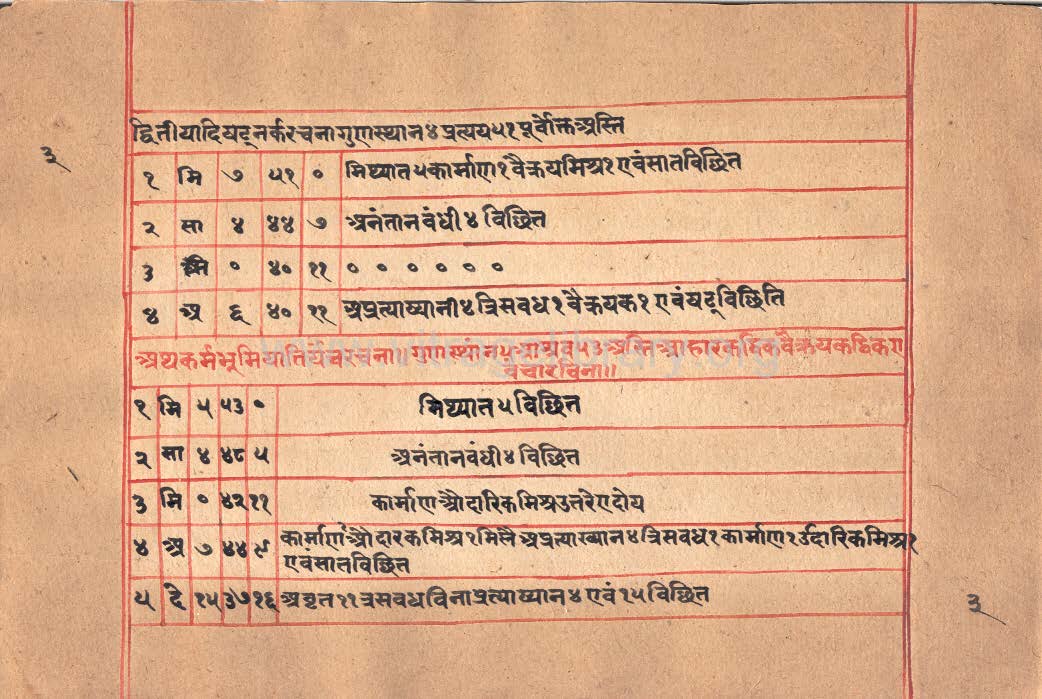 द्वितीयादियद्नर्करचनागुणस्थान४प्रत्यय५१पूर्वोक्तअस्ति
३
१ मि ७ ५१ ० मिथ्यात५कार्माण१वैक्रयमिश्र१एवंसातविछित
२ सा ४ ४४ ७ अनंतानबंधी४विछित
३ मि ० ४० ११ ० ० ० ० ० ०
४ अ ६ ४० ११ अप्रत्याष्यानी४त्रिसवध१वैक्रयक१एवंयद्विछिति
अथकर्मभूमियातिर्यंचरचना॥गुणस्थान५आश्रव५३अस्तिआहारकद्विकवैक्रयकद्विकए
वंचारविना॥
१ मि ५ ५३ ० मिथ्यात५विछित
२ सा ४ ४८ ५ अनंतानबंधी४विछित
३ मि ० ४२ ११ कार्माणऔदारिकमिश्रउत्तरेएदोय
४ अ ७ ४४ ९ कार्माणऔदारकमिश्र१मिलै अप्रत्याख्यान४त्रिसवध१कार्माण१उदारिकमिश्र१
एवंसातविछित
५ दे १५ ३७ १६ अवृत११त्रसवधविनाप्रत्याष्यान४एवं१५विछित
३